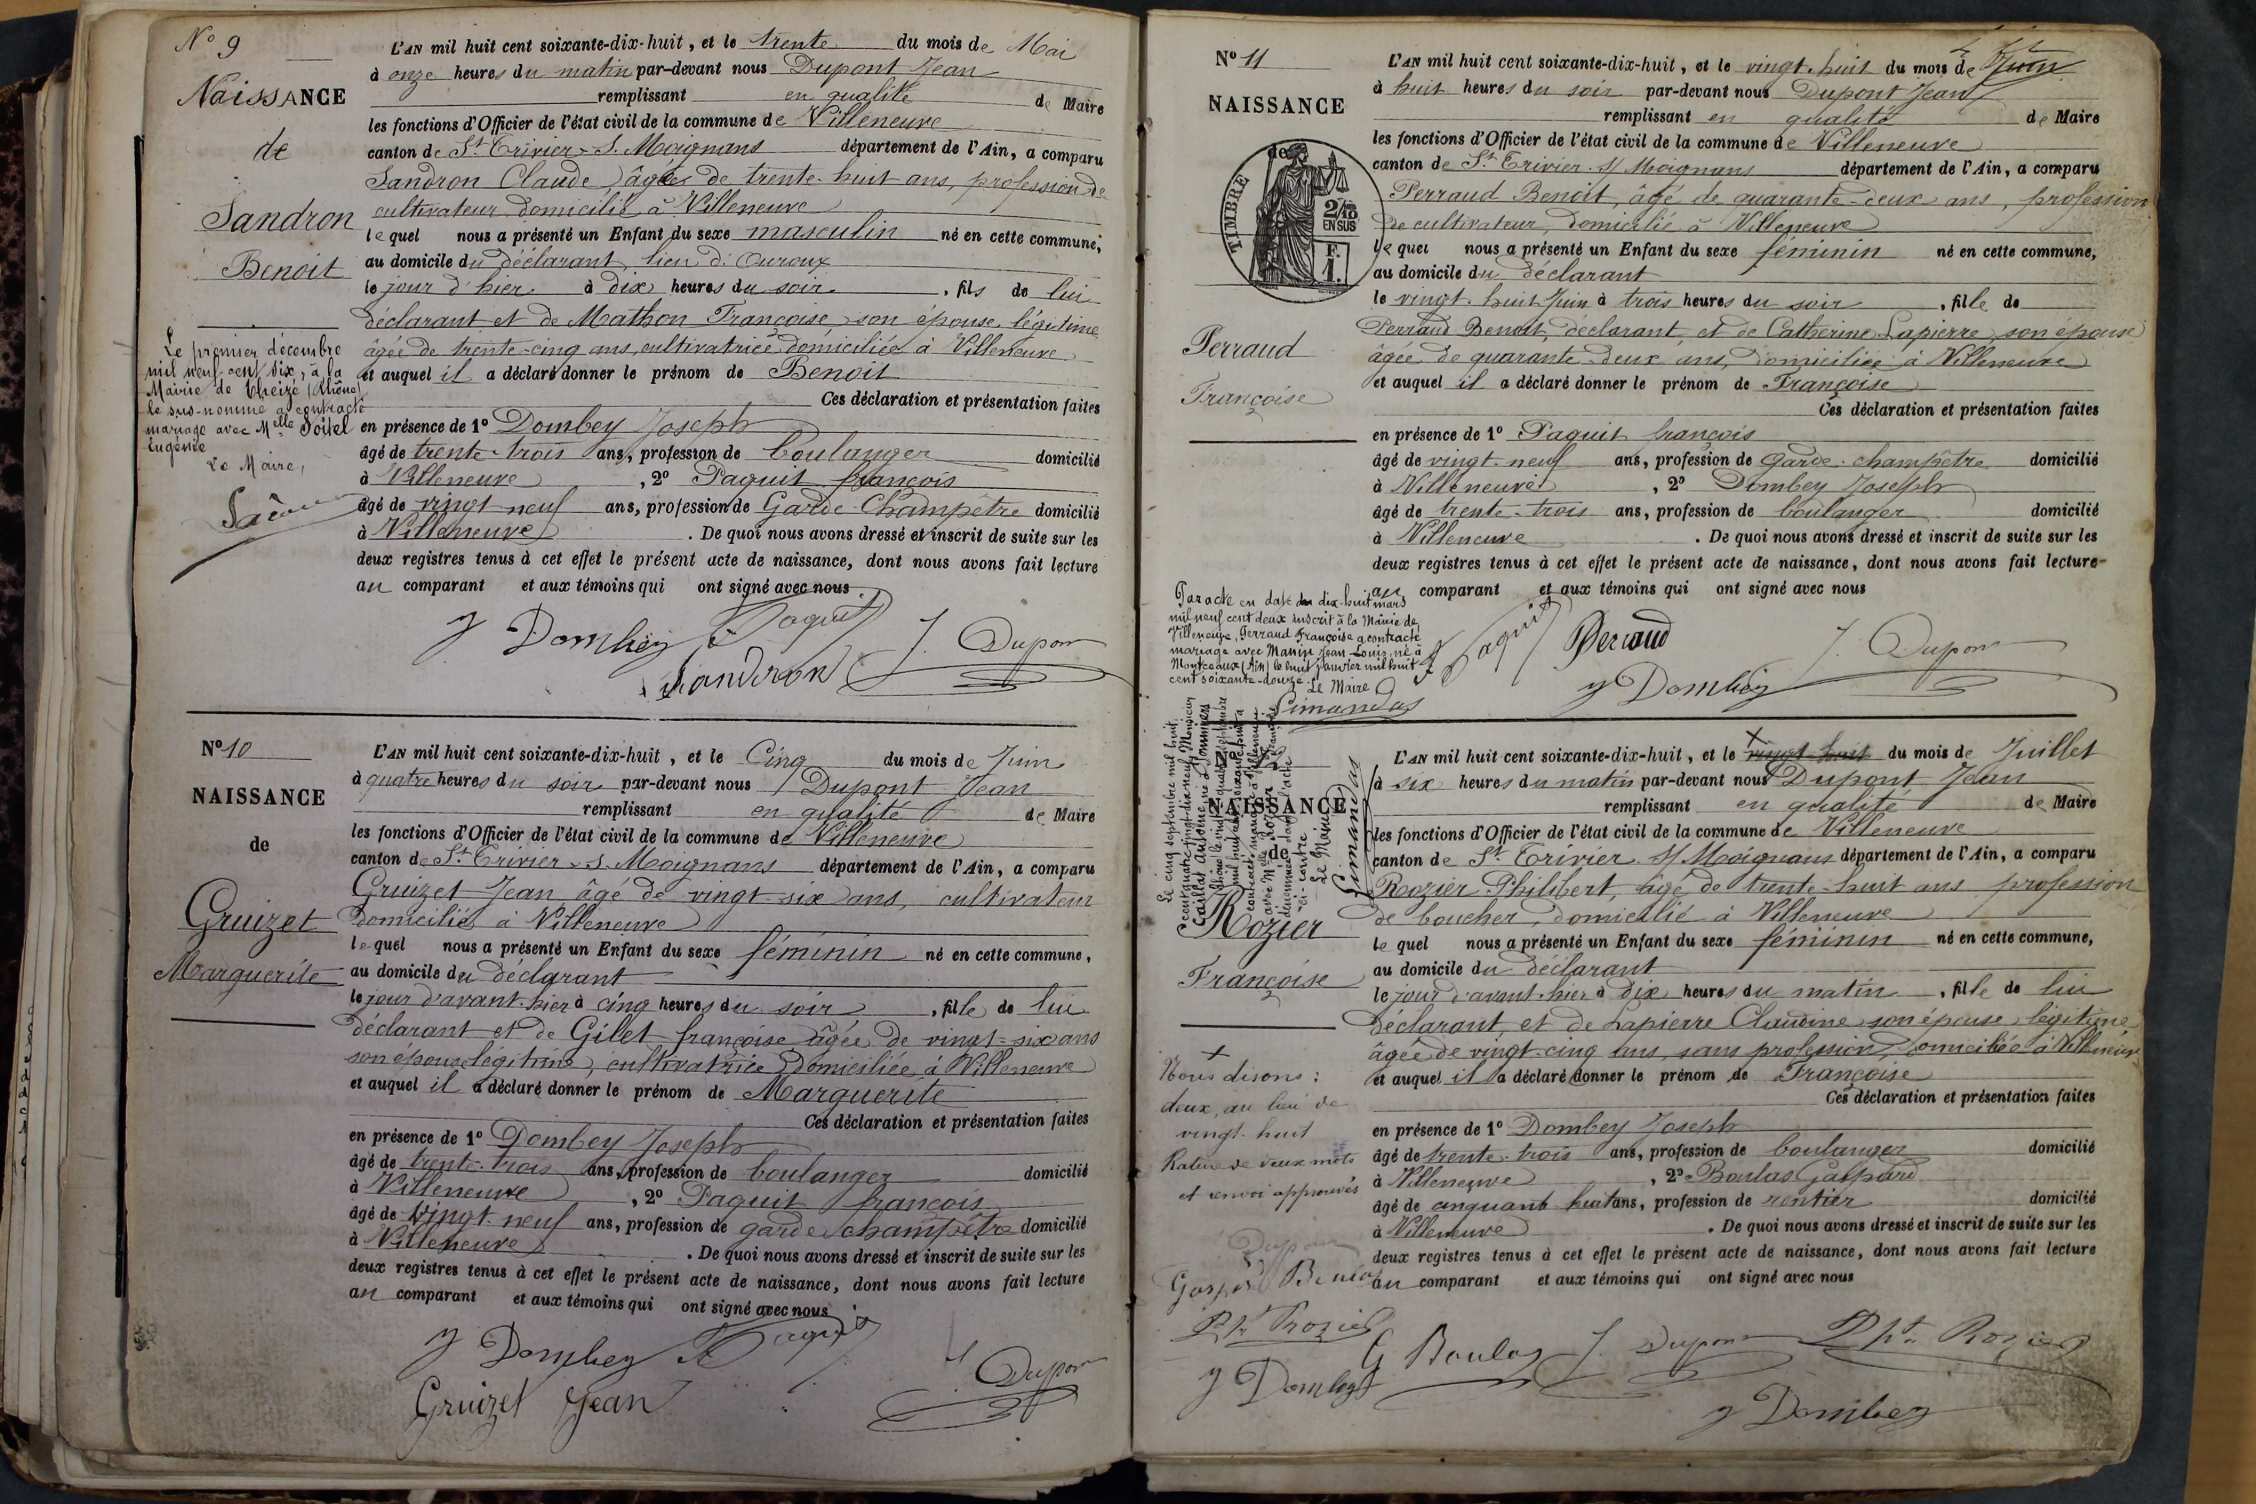 N° 9
NAISSANCE
de
Sandron
Benoit
Le premier décembre
mil neuf cent dix, à la
Mairie de Theizé (Rhône)
le sus-nommé a contracté
mariage avec Melle Soitel
Eugénie
Le Maire,
L'AN mil huit cent soixante-dix-huit, et le trente du mois de Mai
à onze heures du matin par-devant nous Dupont Jean
remplissant en qualité de Maire
les fonctions d'Officier de l'état civil de la commune de Villeneuve
canton de St Trivier s. Moignans département de l'Ain, a comparu
Sandron Claude, âgé de trente-huit ans, profession de
cultivateur domicilié à Villeneuve
lequel nous a présenté un Enfant du sexe masculin né en cette commune,
au domicile du déclarant, lieu d'Ouroux
le jour d'hier à dix heures du soir, fils de lui
déclarant et de Mathon Françoise son épouse légitime
âgée de trente-cinq ans, cultivatrice domiciliée à Villeneuve
et auquel il a déclaré donner le prénom de Benoit
Ces déclaration et présentation faites
en présence de 1° Dombey Joseph
âgé de trente-trois ans, profession de boulanger domicilié
à Villeneuve, 2° Paquit françois
âgé de vingt neuf ans, profession de Garde Champêtre domicilié
à Villeneuve. De quoi nous avons dressé et inscrit de suite sur les
deux registres tenus à cet effet le présent acte de naissance, dont nous avons fait lecture
au comparant et aux témoins qui ont signé avec nous.
J Dombey Paquit J. Dupont
Sandron
N° 10
NAISSANCE
de
Gruizet
Marguerite
L'AN mil huit cent soixante-dix-huit, et le Cinq du mois de Juin
à quatre heures du soir par-devant nous Dupont Jean
remplissant en qualité de Maire
les fonctions d'Officier de l'état civil de la commune de Villeneuve
canton de St Trivier s. Moignans département de l'Ain, a comparu
Gruizet Jean âgé de vingt-six ans, cultivateur
domicilié à Villeneuve
lequel nous a présenté un Enfant du sexe féminin né en cette commune,
au domicile du déclarant
le jour d'avant-hier à cinq heures du soir, fille de lui
déclarant et de Gilet françoise âgée de vingt-six ans
son épouse légitime, cultivatrice domiciliée à Villeneuve
et auquel il a déclaré donner le prénom de Marguerite
Ces déclaration et présentation faites
en présence de 1° Dombey Joseph
âgé de trente-trois ans, profession de boulanger domicilié
à Villeneuve, 2° Paquit françois
âgé de vingt-neuf ans, profession de garde champêtre domicilié
à Villeneuve. De quoi nous avons dressé et inscrit de suite sur les
deux registres tenus à cet effet le présent acte de naissance, dont nous avons fait lecture
au comparant et aux témoins qui ont signé avec nous
J Dombey Paquit J Dupont
Gruizet Jean
N° 11
NAISSANCE
de
TIMBRE
2/10 EN SUS
F. 1.
Perraud
Françoise
L'AN mil huit cent soixante-dix-huit, et le vingt-huit du mois de Juin
à huit heures du soir par-devant nous Dupont Jean
remplissant en qualité de Maire
les fonctions d'Officier de l'état civil de la commune de Villeneuve
canton de St Trivier s/ Moignans département de l'Ain, a comparu
Perraud Benoit, âgé de quarante-deux ans, profession
de cultivateur, domicilié à Villeneuve
lequel nous a présenté un Enfant du sexe féminin né en cette commune,
au domicile du déclarant
le vingt-huit Juin à trois heures du soir, fille de
Perraud Benoit, déclarant, et de Catherine Lapierre, son épouse
âgée de quarante deux ans, domiciliée à Villeneuve
et auquel il a déclaré donner le prénom de Françoise
Ces déclaration et présentation faites
en présence de 1° Paquit françois
âgé de vingt-neuf ans, profession de garde-champêtre domicilié
à Villeneuve, 2° Dombey Joseph
âgé de trente-trois ans, profession de boulanger domicilié
à Villeneuve. De quoi nous avons dressé et inscrit de suite sur les
deux registres tenus à cet effet le présent acte de naissance, dont nous avons fait lecture
au comparant et aux témoins qui ont signé avec nous
Par acte en date du dix-huit mars
mil neuf cent deux inscrit à la Mairie de
Villeneuve, Perraud Françoise a contracté
mariage avec Manin Jean-Louis, né à
Montceaux (Ain) le huit janvier mil huit
cent soixante-douze.
Le Maire
Limandas
Paquit Perraud J. Dupont
J Dombey
NAISSANCE
de
Rozier
Françoise
Le cinq septembre mil huit
cent quatre vingt-dix-neuf Monsieur
Le Maire
Limandas
L'AN mil huit cent soixante-dix-huit, et le vingt-huit du mois de Juillet
à six heures du matin par-devant nous Dupont Jean
remplissant en qualité de Maire
les fonctions d'Officier de l'état civil de la commune de Villeneuve
canton de St Trivier s/ Moignans département de l'Ain, a comparu
Rozier Philibert, âgé de trente-huit ans profession
de boucher, domicilié à Villeneuve
lequel nous a présenté un Enfant du sexe féminin né en cette commune,
au domicile du déclarant
le jour d'avant-hier à dix heures du matin, fille de lui
déclarant, et de Lapierre Claudine son épouse légitime
âgée de vingt-cinq ans, sans profession, domiciliée à Villeneuve
et auquel il a déclaré donner le prénom de Françoise
Ces déclaration et présentation faites
en présence de 1° Dombey Joseph
âgé de trente-trois ans, profession de boulanger domicilié
à Villeneuve, 2° Boulas Gaspard
âgé de cinquante huit ans, profession de rentier domicilié
à Villeneuve. De quoi nous avons dressé et inscrit de suite sur les
deux registres tenus à cet effet le présent acte de naissance, dont nous avons fait lecture
au comparant et aux témoins qui ont signé avec nous
Nous disons :
deux, au lieu de
vingt-huit
Rature de deux mots
et renvoi approuvés
Dupont
Gaspard Boulas
Pht Rozier
J Dombey
G Boulas J. Dupont Pht Rozier
J Dombey